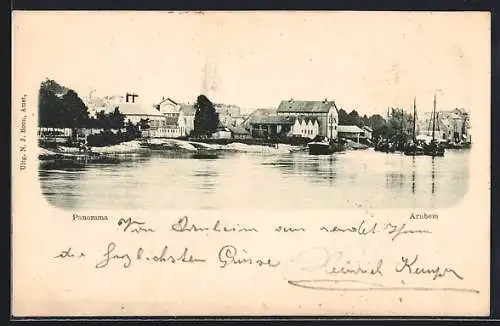 Uitg. N. J. Boon, Amst.
Panorama
Arnhem
Von Arnheim aus sendet Ihnen
die herzlichsten Grüsse
Heinrich